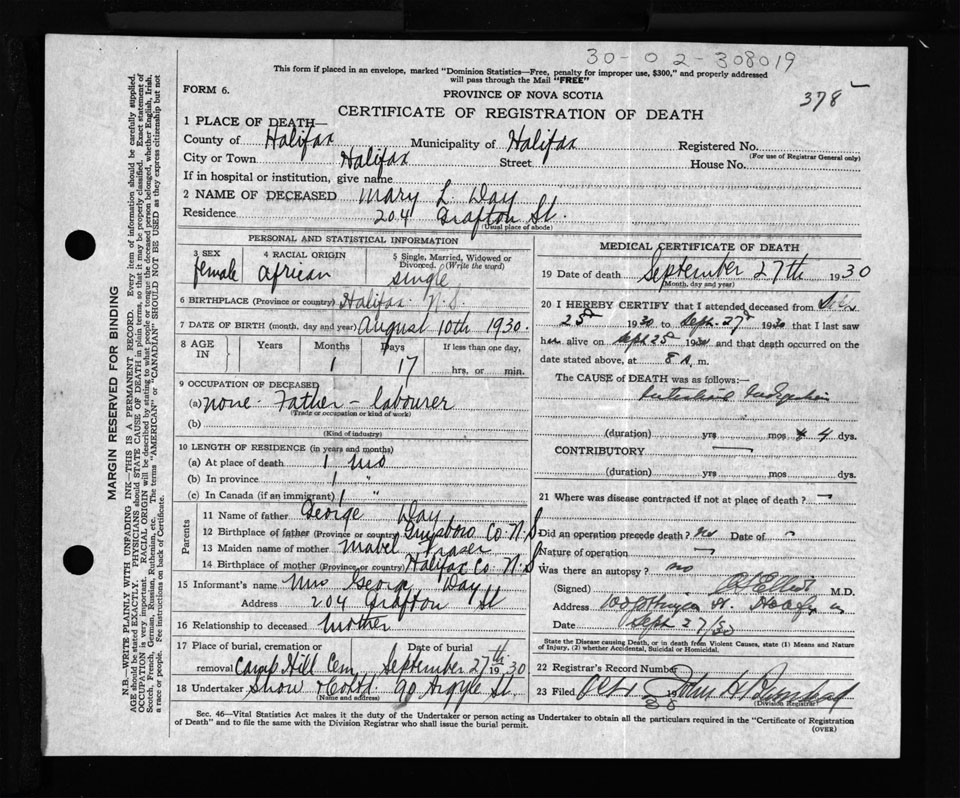 30-02-308019
This form if placed in an envelope, marked "Dominion Statistics—Free, penalty for improper use, $300," and properly addressed
will pass through the Mail "FREE"
378
FORM 6.
PROVINCE OF NOVA SCOTIA
CERTIFICATE OF REGISTRATION OF DEATH
1 PLACE OF DEATH—
County of Halifax Municipality of Halifax Registered No.
(For use of Registrar General only)
City or Town Halifax Street House No.
If in hospital or institution, give name
2 NAME OF DECEASED Mary L. Day
Residence 204 Grafton St.
(Usual place of abode)
PERSONAL AND STATISTICAL INFORMATION
3 SEX female
4 RACIAL ORIGIN african
5 Single, Married, Widowed or
Divorced. (Write the word)
single
6 BIRTHPLACE (Province or country) Halifax N.S.
7 DATE OF BIRTH (month, day and year) August 10th 1930.
8 AGE IN Years Months Days If less than one day,
1 17 hrs. or min.
9 OCCUPATION OF DECEASED
(a) none - Father - labourer
(Trade or occupation or kind of work)
(b)
(Kind of industry)
10 LENGTH OF RESIDENCE (in years and months)
(a) At place of death 1 mo
(b) In province 1 "
(c) In Canada (if an immigrant) 1 "
Parents
11 Name of father George Day
12 Birthplace of father (Province or country) Guysboro Co. N.S.
13 Maiden name of mother Mabel Fraser
14 Birthplace of mother (Province or country) Halifax Co. N.S.
15 Informant's name Mrs George Day
Address 204 Grafton St
16 Relationship to deceased mother
17 Place of burial, cremation or Date of burial
removal Camp Hill Cem. September 27th 1930
18 Undertaker Snow & Co Ltd. 90 Argyle St.
(Name and address)
MEDICAL CERTIFICATE OF DEATH
19 Date of death September 27th 1930
(Month, day and year)
20 I HEREBY CERTIFY that I attended deceased from
25 1930 to Sept. 27 1930 that I last saw
her alive on Sept 25 1930 and that death occurred on the
date stated above, at 8 A. m.
The CAUSE OF DEATH was as follows:
(duration) yrs mos 4 dys.
CONTRIBUTORY
(duration) yrs mos dys.
21 Where was disease contracted if not at place of death?
Did an operation precede death? no Date of
Nature of operation
Was there an autopsy? no
(Signed) M.D.
Address
Date Sept 27/30
State the Disease causing Death, or in death from Violent Causes, state (1) Means and Nature
of Injury, (2) whether Accidental, Suicidal or Homicidal.
22 Registrar's Record Number
23 Filed Oct 1 John H.
(Division Registrar)
Sec. 46—Vital Statistics Act makes it the duty of the Undertaker or person acting as Undertaker to obtain all the particulars required in the "Certificate of Registration
of Death" and to file the same with the Division Registrar who shall issue the burial permit.
(OVER)
MARGIN RESERVED FOR BINDING
N.B.—WRITE PLAINLY WITH UNFADING INK—THIS IS A PERMANENT RECORD. Every item of information should be carefully supplied.
AGE should be stated EXACTLY. PHYSICIANS should STATE CAUSE OF DEATH in plain terms, so that it may be properly classified. Exact statement of
OCCUPATION is very important. RACIAL ORIGIN will be described by stating to what people or tongue the deceased person belonged, whether English, Irish,
Scotch, French, German, Russian, Ruthenian, etc. The terms "AMERICAN" or "CANADIAN" SHOULD NOT BE USED as they express citizenship but not
a race or people. Fee instructions on back of Certificate.